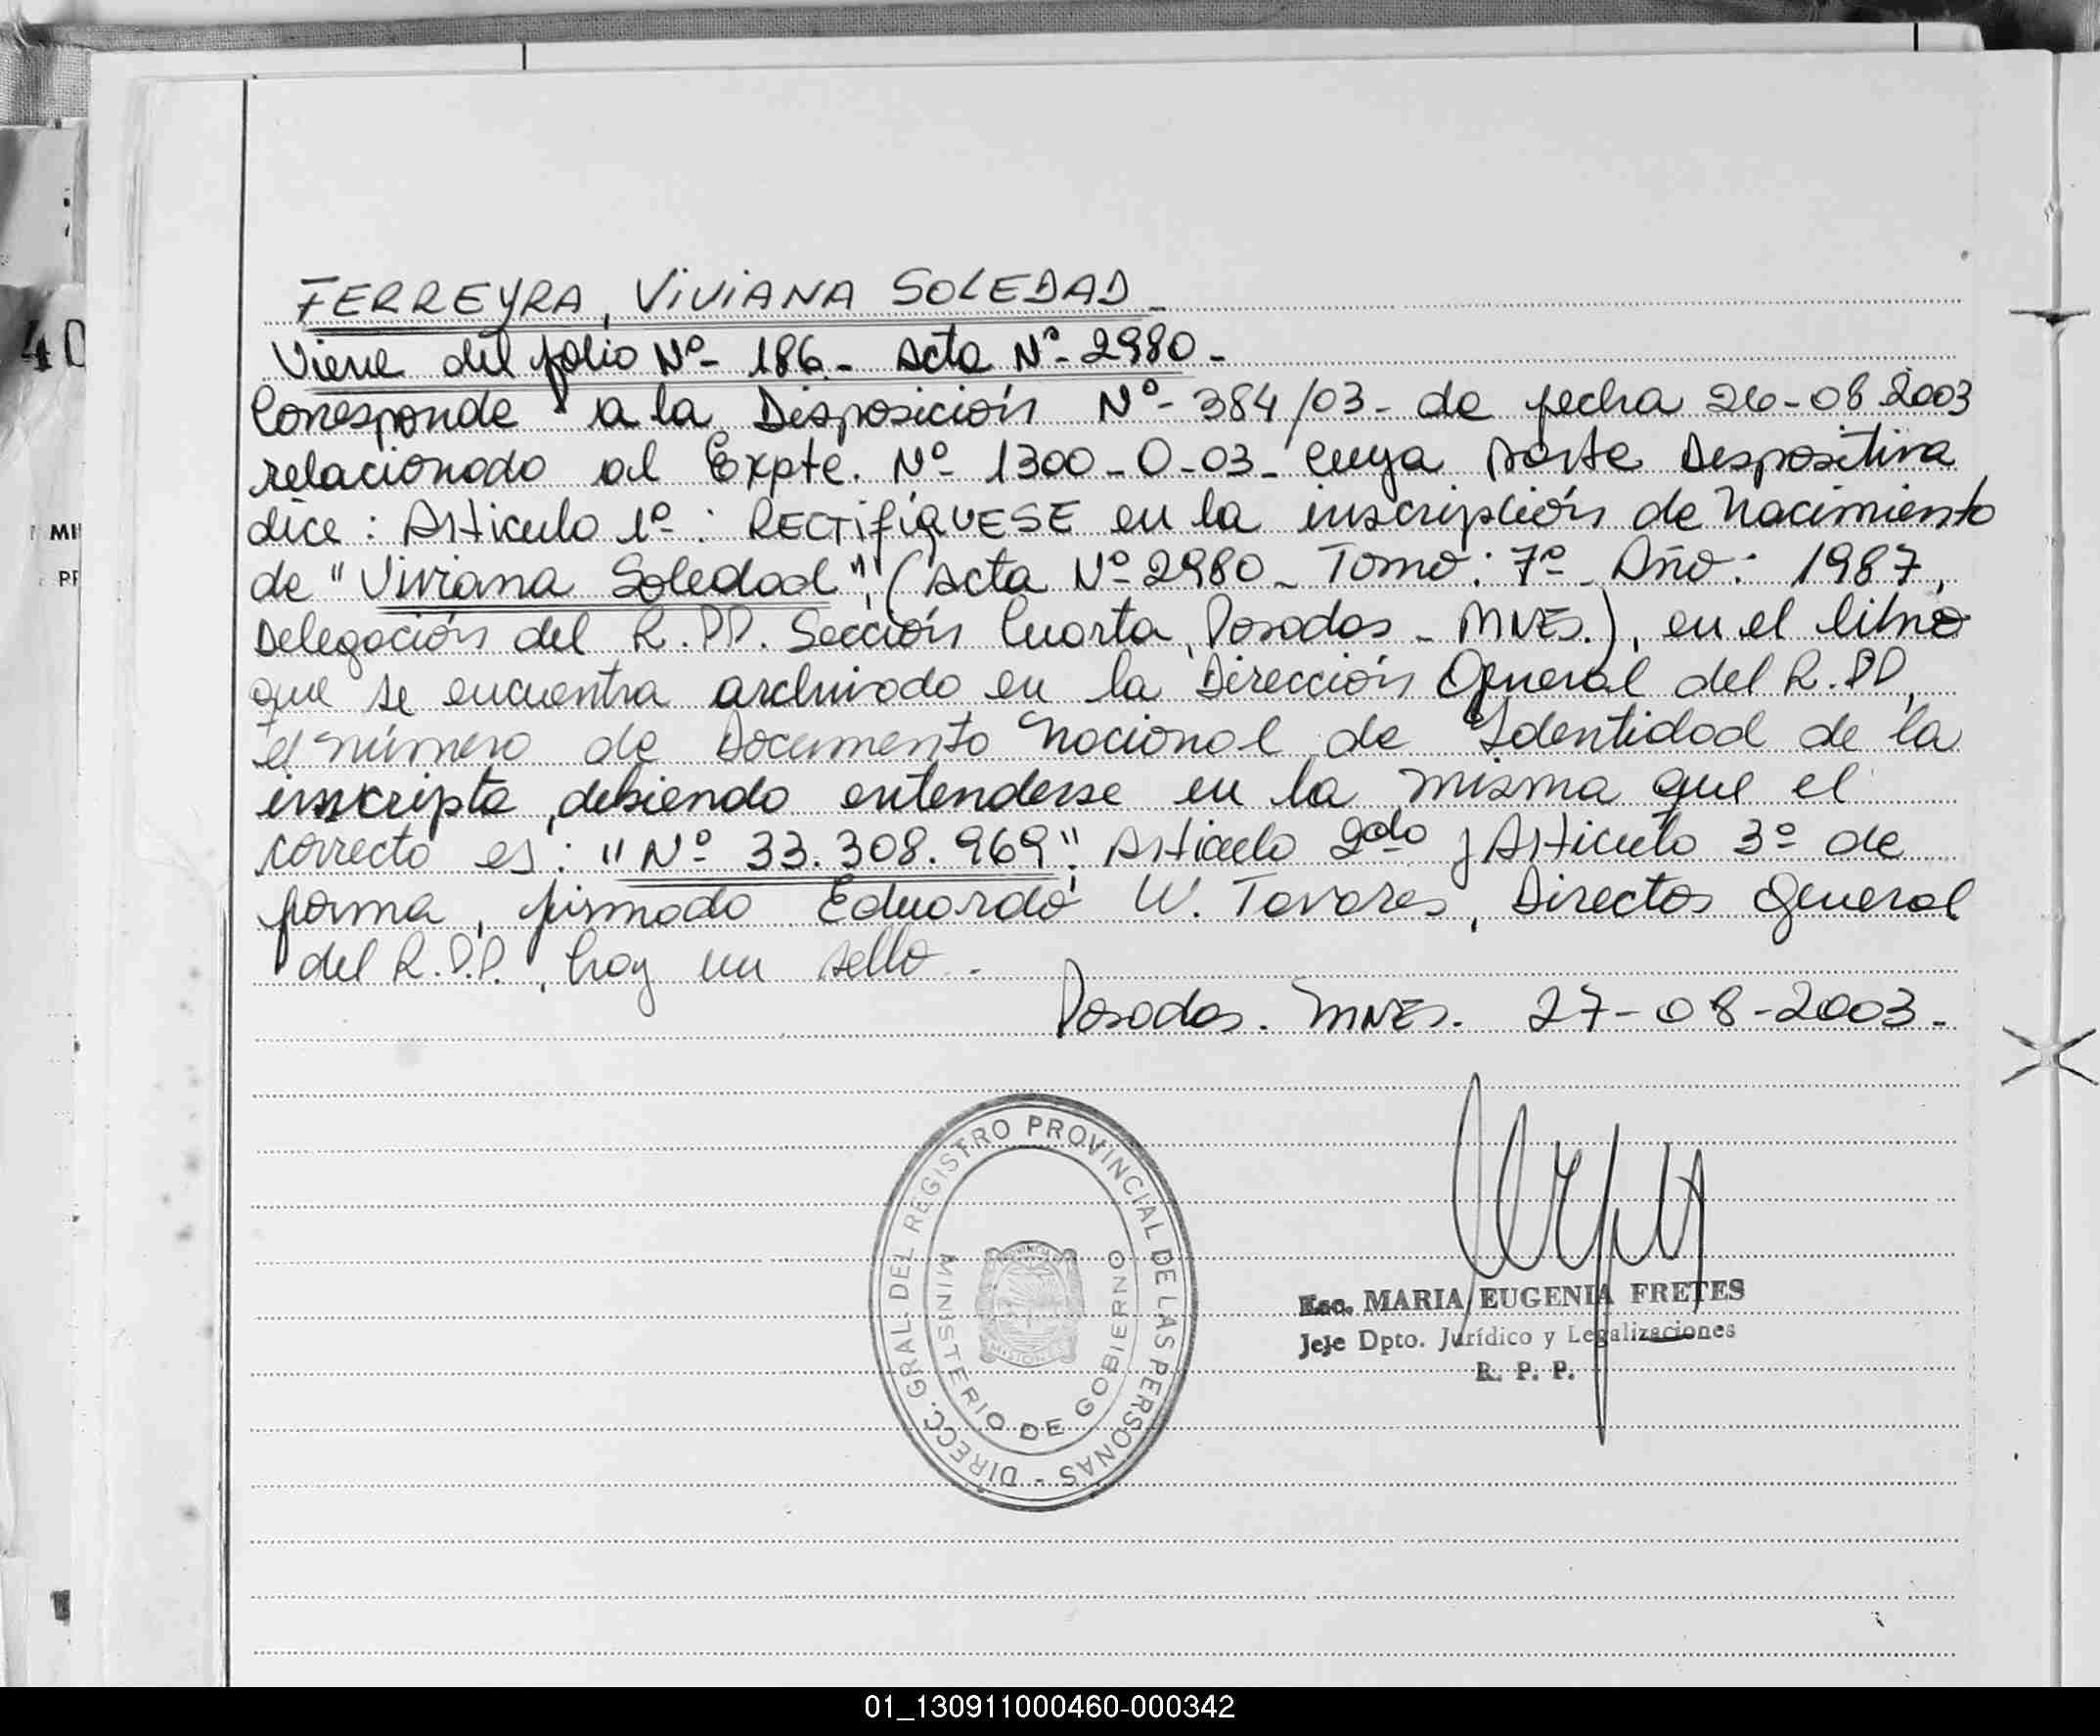 FERREYRA, ViViANA SOLEDAD -
Viene del folio Nº- 186 - Acta Nº- 2980 -
Corresponde a la Disposición Nº- 384/03 - de fecha 26-08-2003
relacionado al Expte. Nº- 1300-O-03- cuya parte Dispositiva
dice: Articulo 1º: RECTIFÍQUESE en la inscripción de Nacimiento
de "Viviana Soledad", (Acta Nº 2980 - Tomo: 7º - Año: 1987,
Delegación del R.PP. Sección Cuarta, Posadas - MNES.), en el libro
que se encuentra archivado en la Dirección General del R.PP,
el número de Documento Nacional de Identidad de la
inscripta, debiendo entenderse en la misma que el
correcto es: "Nº 33.308.969", Articulo 2do y Articulo 3º de
forma, firmado Eduardo W. Tavares, Director General
del R.P.P., hay un sello -
Posadas. MNES. 27-08-2003 -
DIRECC. GRAL. DEL REGISTRO PROVINCIAL DE LAS PERSONAS -
MINISTERIO DE GOBIERNO
PROVINCIA
MISIONES
Esc. MARIA EUGENIA FRETES
Jefe Dpto. Jurídico y Legalizaciones
R. P. P.
40
MI
PF
01_130911000460-000342